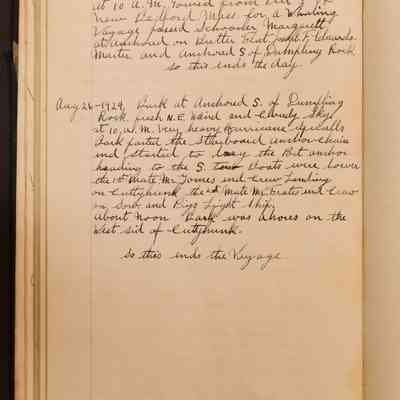 at 10 A.M. Towed from
New Bedford Mass. for a Whaling
Voyage passed Schooner Margarett
at anchored on Butler Flat, Joseph F. Edwards
Master and anchored S of Dumpling Rock
so this ends the day.
Aug 26-1924, Bark at Anchored S. of Dumpling
Rock fresh N.E. Waind and Cloudy Sky
at 10, A.M. Very heavy Hurricane
Bark parted the Starboard anchor chain
and started to the Port anchor
heading to the S. Boats were Lower
the 1st Mate Mr. Gomes and Crew Landing
on Cuttyhunk the 2nd Mate Mr. and Crew
on and Pigs Light Ship
About Noon Bark was ahores on the
West sid of Cuttyhunk.
So this ends the Voyage